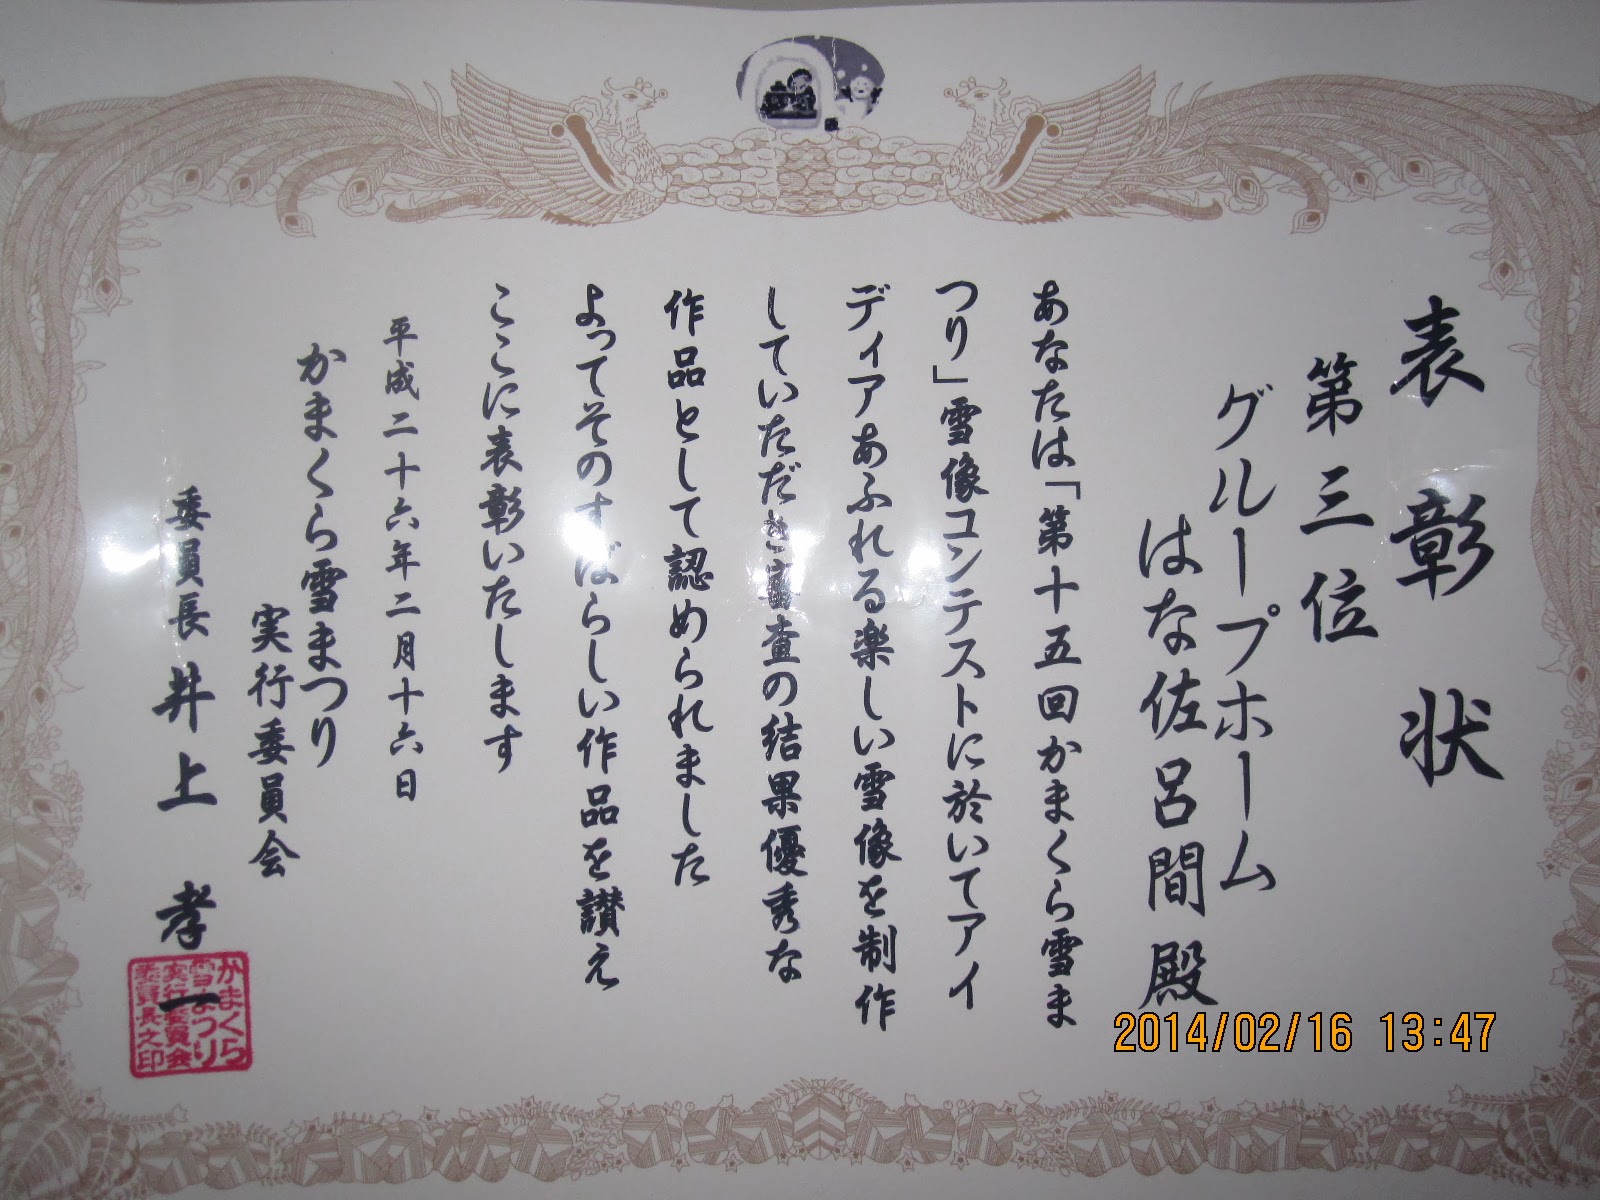 表彰状
第三位
グループホーム
はな佐呂間殿
あなたは「第十五回かまくら雪ま
つり」雪像コンテストに於いてアイ
ディアあふれる楽しい雪像を制作
していただき審査の結果優秀な
作品として認められました
よってそのすばらしい作品を讃え
ここに表彰いたします
平成二十六年二月十六日
かまくら雪まつり
実行委員会
委員長 井上 孝一
かまくら
雪まつり
実行委員会
委員長之印
2014/02/16 13:47